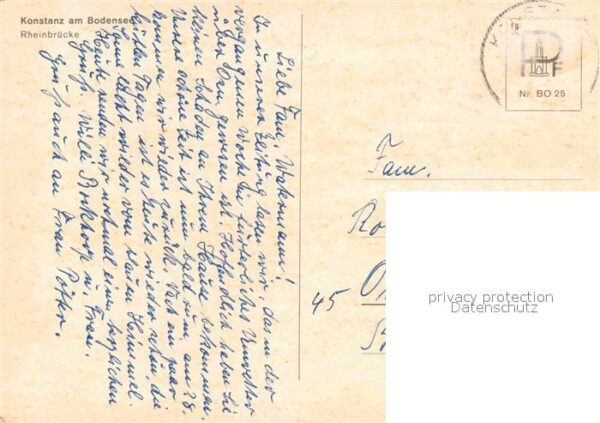 Konstanz am Bodensee
Rheinbrücke
Liebe Fam. !
In unserer Zeitung lasen wir, das in der
vergangenen Woche ein fürchterliches Unwetter
über gewesen ist. Hoffentlich haben Sie
keinen Schaden an Ihrem Hause bekommen.
Unsere schöne Zeit ist nun bald um, am 28.
kommen wir wieder zurück. Nach ein paar
kühlen Tagen ist es heute wieder schön, die
Sonne lacht wieder vom blauen Himmel.
Heute senden wir nochmal einen herzlichen
Gruß. Willi u. Frau.
Gruß auch an Frau
F
Nr. BO 25
Fam.
Ro
45 O
privacy protection
Datenschutz